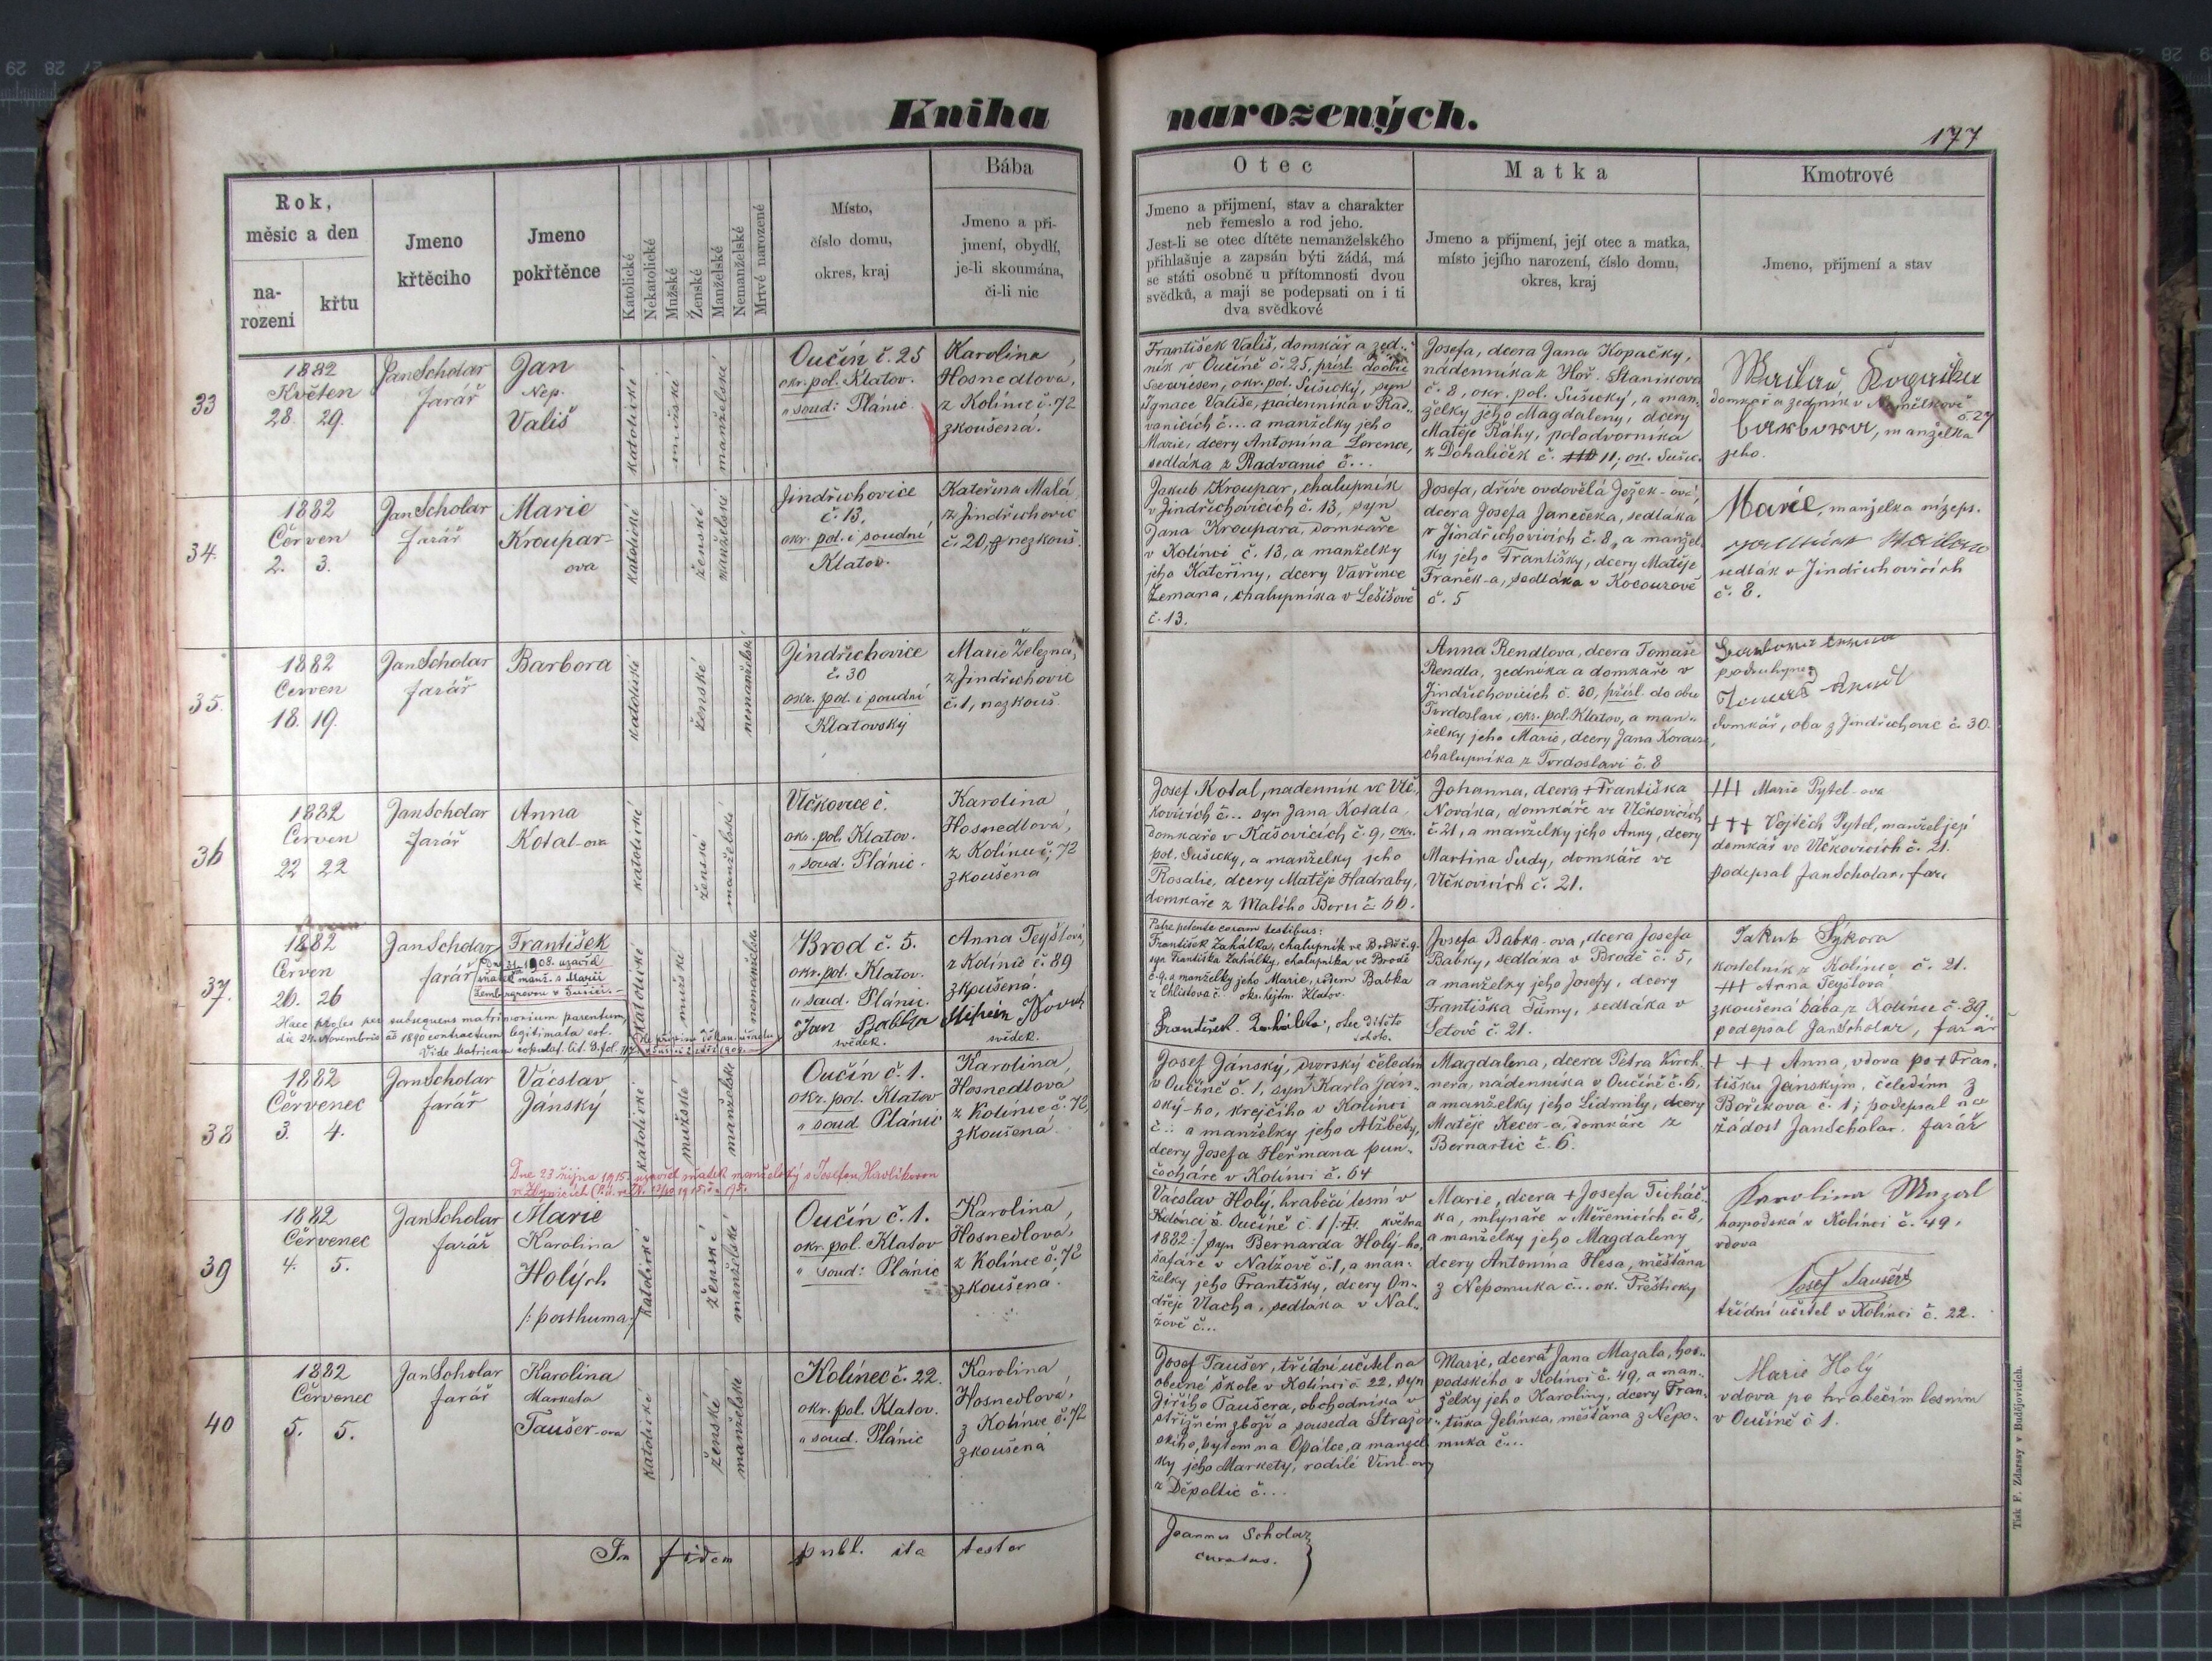 Kniha narozených.
177
Rok,
měsíc a den
na-
rození
křtu
Jmeno
křtěcího
Jmeno
pokřtěnce
Katolické
Nekatolické
Mužské
Ženské
Manželské
Nemanželské
Mrtvé narozené
Místo,
číslo domu,
okres, kraj
Bába
Jmeno a při-
jmení, obydlí,
je-li skoumána,
či-li nic
Otec
Jmeno a přijmení, stav a charakter
neb řemeslo a rod jeho.
Jest-li se otec dítěte nemanželského
přihlašuje a zapsán býti žádá, má
se státi osobně u přítomnosti dvou
svědků, a mají se podepsati on i ti
dva svědkové
Matka
Jmeno a přijmení, její otec a matka,
místo jejího narození, číslo domu,
okres, kraj
Kmotrové
Jmeno, přijmení a stav
33
1882
Květen
28. 29.
Jan Scholar
farář
Jan
Nep.
Vališ
katolické
mužské
manželské
Oučín č. 25
okr. pol. Klatov.
" soud: Plánic
Karolina
Hosnedlova,
z Kolince č. 72
zkoušena.
František Vališ, domkář a zed-
ník v Oučíně č. 25, přísl. do obce
okr. pol. Sušický, syn
Ignace Vališe, nádenníka v Rad-
vanicích č... a manželky jeho
Marie, dcery Antonína Lorence,
sedláka z Radvanic č...
Josefa, dcera Jana Kopačky,
nádenníka z Hoř. Staníkova
č. 8, okr. pol. Sušický, a man-
želky jeho Magdaleny, dcery
Matěje Ráhy, polodvorníka
z Dohaliček č. 11, ok. Sušic.
domkář a zedník v
č. 27
barbora, manželka
jeho.
34.
1882
Červen
2. 3.
Jan Scholar
farář
Marie
Kroupar-
ova
katolické
ženské
manželské
Jindřichovice
č. 13.
okr. pol. i soudní
Klatov.
Kateřina Malá
z Jindřichovic
č. 20, nezkouš.
Jakub Kroupar, chalupník
v Jindřichovicích č. 13, syn
Jana Kroupara, domkáře
v Kolinci č. 13, a manželky
jeho Kateřiny, dcery Vavřince
Zemana, chalupníka v Lešišově
č. 13.
Josefa, dříve ovdovělá Ježek-ová,
dcera Josefa Janečeka, sedláka
v Jindřichovicích č. 8, a manžel-
ky jeho Františky, dcery Matěje
Franěk-a, sedláka v Kocourově
č. 5
Marie, manželka nížeps.
sedlák v Jindřichovicích
č. 8.
35.
1882
Červen
18. 19.
Jan Scholar
farář
Barbora
katolické
ženské
nemanželské
Jindřichovice
č. 30
okr. pol. i soudní
Klatovský
Marie Železná,
z Jindřichovic
č. 1, nezkouš.
Anna Rendlova, dcera Tomáše
Rendla, zedníka a domkáře v
Jindřichovicích č. 30, přísl. do obce
Tvrdoslavi, okr. pol. Klatov, a man-
želky jeho Marie, dcery Jana
chalupníka z Tvrdoslavi č. 8
domkář, oba z Jindřichovic č. 30.
36
1882
Červen
22 22
Jan Scholar
farář
Anna
Kotal-ova
katolické
ženské
manželské
Vlčkovice č.
okr. pol. Klatov.
" soud. Plánic.
Karolina
Hosnedlová,
z Kolince č. 72
zkoušena
Josef Kotal, nádenník ve Vlč-
kovicích č... syn Jana Kotala,
domkáře v Kašovicích č. 9, okr.
pol. Sušický, a manželky jeho
Rosalie, dcery Matěje Hadraby,
domkáře z Malého Boru č. 66.
Johanna, dcera + Františka
Nováka, domkáře ve Vlčkovicích
č. 21, a manželky jeho Anny, dcery
Martina Sudy, domkáře ve
Vlčkovicích č. 21.
+++ Marie Pytel-ova
+++ Vojtěch Pytel, manžel její
domkář ve Vlčkovicích č. 21.
podepsal Jan Scholar, farář
37.
1882
Červen
26. 26
Jan Scholar
farář
František
Dne 1908. uzavřel
sňatek manž. s Marií
v Sušici.
Haec proles per subsequens matrimonium parentum,
die 24. Novembris aō 1890 contractum legitimata est.
Vide Matricam copulat. lit. D. fol.
katolické
mužské
nemanželské
Brod č. 5.
okr. pol. Klatov.
" soud. Plánic.
Jan Babka
svědek.
Anna Teyštová
z Kolince č. 89
zkoušená.
Novák
svědek.
Patre petente coram testibus:
František Zahálka, chalupník ve Brodě č. 9.
syn Františka Zahálky, chalupníka ve Brodě
č. 9, a manželky jeho Marie, Babka
z Chlistova č. okr. hejtm. Klatov.
František Zahálka, otec dítěte
tohoto.
Josefa Babka-ova, dcera Josefa
Babky, sedláka v Brodě č. 5,
a manželky jeho Josefy, dcery
Františka Tůmy, sedláka v
Letově č. 21.
Jakub Sýkora
kostelník z Kolince č. 21.
+++ Anna Teyštová
zkoušená bába z Kolince č. 89.
podepsal Jan Scholar, farář
38
1882
Červenec
3. 4.
Jan Scholar
farář
Václav
Jánský
katolické
mužské
manželské
Oučín č. 1.
okr. pol. Klatov
" soud Plánic
Karolina,
Hosnedlova
z Kolince č. 72,
zkoušena
Josef Jánský, dvorský čeledín
v Oučíně č. 1, syn + Karla Ján-
ský-ho, krejčího v Kolinci
č... a manželky jeho Alžběty,
dcery Josefa Heřmana pun-
čocháře v Kolinci č. 64
Magdalena, dcera Petra Kirch-
nera, nádenníka v Oučíně č. 6,
a manželky jeho Lidmily, dcery
Matěje Kecer-a, domkáře z
Bernartic č. 6.
+++ Anna, vdova po + Fran-
tišku Jánským, čeledínu z
Boříkova č. 1; podepsal na
žádost Jan Scholar. farář
Dne 23 října 1915. uzavřel sňatek manželský s Josefou Havlíkovou
39
1882
Červenec
4. 5.
Jan Scholar
farář
Marie
Karolina
Holých
/: posthuma :/
katolické
ženské
manželské
Oučín č. 1.
okr. pol. Klatov
" soud: Plánic
Karolina,
Hosnedlova,
z Kolince č. 72
zkoušena.
Václav Holý, hraběcí lesní v
Oučíně č. 1 /: + května
1882 :/ syn Bernarda Holý-ho,
šafáře v Nalžově č. 1, a man-
želky jeho Františky, dcery On-
dřeje Vlacha, sedláka v Nal-
žově č...
Marie, dcera + Josefa Ticháč-
ka, mlynáře v Měřenicích č. 8,
a manželky jeho Magdaleny
dcery Antonína Hesa, měšťana
z Nepomuka č... ok. Přeštický
Karolina Mazal
hospodská v Kolinci č. 49,
vdova
Josef Taušer
třídní učitel v Kolinci č. 22.
40
1882
Červenec
5. 5.
Jan Scholar
farář
Karolina
Marketa
Taušer-ova
katolické
ženské
manželské
Kolínec č. 22.
okr. pol. Klatov.
" soud. Plánic
Karolina
Hosnedlová,
z Kolince č. 72
zkoušená
Josef Taušer, třídní učitel na
obecné škole v Kolinci č. 22, syn
Jiřího Taušera, obchodníka v
střižném zboží a souseda Strážo-
vského, bytem na Opálce, a manžel-
ky jeho Markety, rodilé
z Děpoltic č...
Marie, dcera + Jana Mazala, hos-
podského v Kolinci č. 49, a man-
želky jeho Karoliny, dcery Fran-
tiška Jelínka, měšťana z Nepo-
muka č...
Marie Holý
vdova po hraběcím lesním
v Oučíně č 1.
In fidem publ. ita testor
Joannes Scholar
curatus.
Tisk F. Zdarssy v Budějovicích.